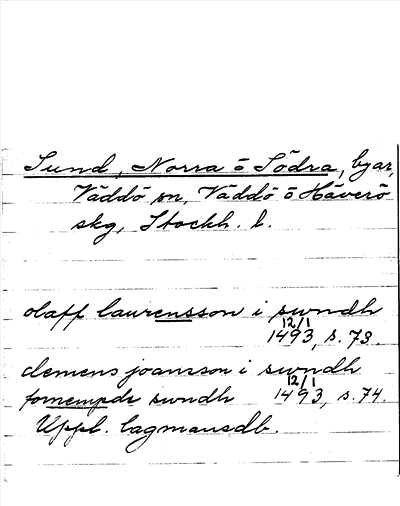 Sund, Norra o Södra, byar,
Väddö sn, Väddö o Häverö
skg, Stockh. l.
olaff laurensson i swndh
12/1
1493, s. 73.
clemens joansson i swndh
12/1
fornempde swndh 1493, s. 74.
Uppl. lagmansdb.